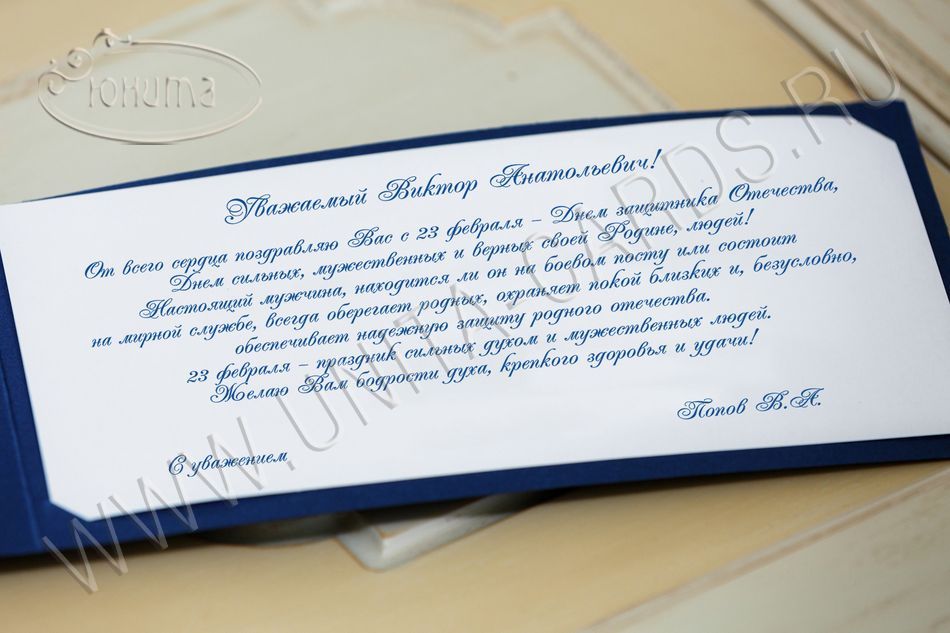 Юнита
Уважаемый Виктор Анатольевич!
От всего сердца поздравляю Вас с 23 февраля – Днем защитника Отечества,
Днем сильных, мужественных и верных своей Родине, людей!
Настоящий мужчина, находится ли он на боевом посту или состоит
на мирной службе, всегда оберегает родных, охраняет покой близких и, безусловно,
обеспечивает надежную защиту родного отечества.
23 февраля – праздник сильных духом и мужественных людей.
Желаю Вам бодрости духа, крепкого здоровья и удачи!
С уважением Попов В.А.
WWW.UNITA-CARDS.RU